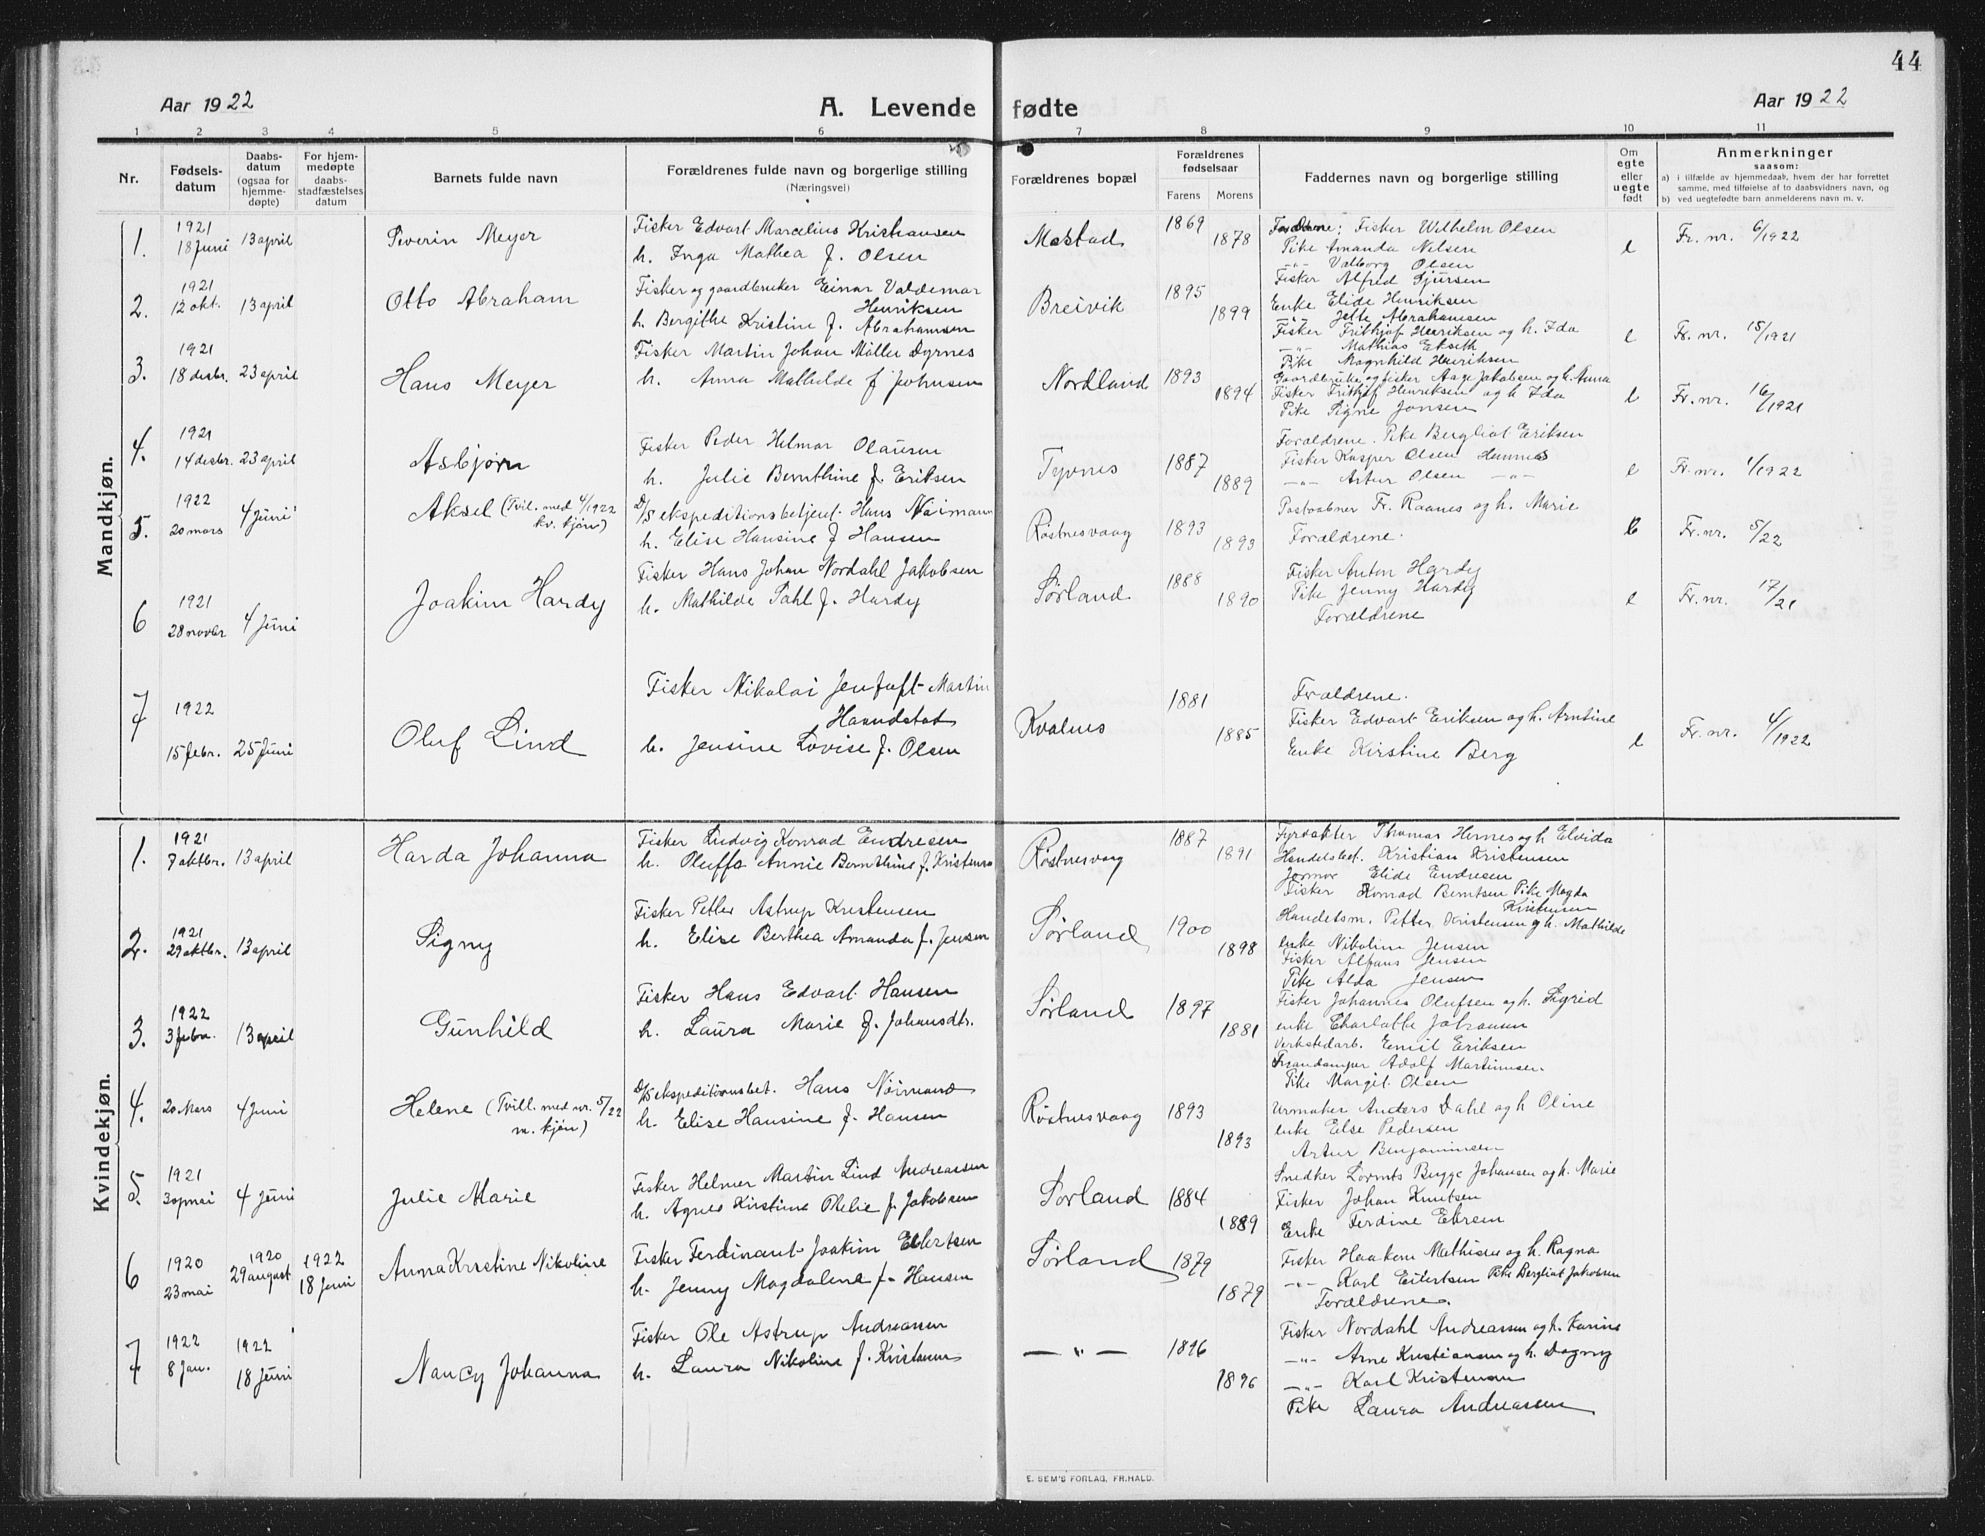 44
Aar 1922
A. Levende fødte
Aar 1922
1 2 3 4 5 6 7 8 9 10 11
Nr.
Fødsels-
datum
Daabs-
datum
(ogsaa for
hjemme-
døpte)
For hjem-
medøpte
daabs-
stadfæstelses
datum
Barnets fulde navn
Forældrenes fulde navn og borgerlige stilling
(Næringsvei)
Forældrenes bopæl
Forældrenes
fødselsaar
Farens Morens
Faddernes navn og borgerlige stilling
Om
egte
eller
uegte
født
Anmerkninger
saasom:
a) i tilfælde av hjemmedaab, hvem der har forrettet
samme, med tilføielse af to daabsvidners navn, og
b) ved uegtefødte barn anmelderens navn m. v.
Mandkjøn.
1.
1921
18 juni 13 april
Severin Meyer
Fisker Edvart Marcelius Kristiansen
h. Inga Mathea f. Olsen
Mostad
1869
1878
Forældrene: Fisker Wilhelm Olsen
Pike Amanda Nilsen
-"- Valborg Olsen
Fisker Alfred Sjursen
e
Fr. nr. 6/1922
2.
1921
12 okt. 13 april
Otto Abraham
Fisker og gaardbruker Einar Valdemar
Henriksen
h. Bergithe Kristine f. Abrahamsen
Breivik
1895
1899
Enke Elide Henriksen
-"- Jette Abrahamsen
Fisker Frithjof Henriksen og h. Ida
-"- Mathias Ekseth
Pike Magnhild Henriksen
e
Fr. nr. 15/1921
3.
1921
18 desbr. 23 april
Hans Meyer
Fisker Martin Johan Møller Dyrnes
h. Anna Mathilde f Johnsen
Nordland
1893
1894
Gaardbruker og fisker Aage Jakobsen og h. Anna
Fisker Frithjof Henriksen og h Ida
Pike Signe Jensen
e
Fr. nr. 16/1921
4.
1921
14 desbr. 23 april
Asbjørn
Fisker Peder Helmar Olausen
h. Julie Bernthine f. Eriksen
Tyvnes
1887
1889
Forældrene. Pike Bergliot Eriksen
Fisker Kasper Olsen Hemnes
-"- Artur Olsen -"-
e
Fr. nr. 1/1922
5.
1922
20 mars 4 juni
Aksel (Tvil. med 4/1922
kv. kjøn)
D/S ekspeditionsbetjent Hans Nøimann
h. Elise Hansine f Hansen
Røstnesvaag
1893
1893
Postaabner Fr. Raanes og h. Marie
Forældrene.
e
Fr. nr. 5/22
6
1921
28 novbr 4 juni
Joakim Hardy
Fisker Hans Johan Nordahl Jakobsen
h. Mathilde Dahl f. Hardy
Sørland
1888
1890
Fisker Anton Hardy
Pike Jenny Hardy
Forældrene
e
Fr. nr. 17/21
7
1922
15 febr. 25 juni
Oluf Lind
Fisker Nikolai Jentoft Martin
Haandstad
h. Jensine Lovise f. Olsen
Kvalnes
1881
1885
Forældrene.
Fisker Edvart Eriksen og h. Arntine
Enke Kirstine Berg
e
Fr. nr. 4/1922
Kvindekjøn.
1.
1921
7 oktbr. 13 april
Harda Johanna
Fisker Ludvig Konrad Endresen
h. Oluffa Annie Bernthine f. Kristensen
Røstnesvaag
1887
1891
Fyrvakter Thomas Hernes og h Elvida
Handelsbet. Kristian Kristensen
Jormor Elide Endresen
Fisker Konrad Berntsen Pike Magda
Kristensen
2.
1921
29 oktbr. 13 april
Signy
Fisker Petter Astrup Kristensen
h. Elise Berthea Amanda f. Jensen
Sørland
1900
1898
Handelsm. Petter Kristensen og h. Mathilde
enke Nikoline Jensen
Fisker Alfons Jensen
Pike Alda Jensen
3.
1922
3 febr. 13 april
Gunhild
Fisker Hans Edvart Hansen
h. Laura Marie f. Johansdtr.
Sørland
1897
1881
Fisker Johannes Olufsen og h. Sigrid
enke Charlotte Johansen
Verkstedarb. Emil Eriksen
Adolf Martinusen.
Pike Margit Olsen
4.
20 Mars 4 juni
Helene (Tvill. med nr. 5/22
m. kjøn)
D/S ekspeditionsbet. Hans Nøimann
h. Elise Hansine f. Hansen
Røstnesvaag
1893
1893
Urmaker Anders Dahl og h Oline
enke Else Pedersen
Artur Benjaminsen
5.
1921
30 mai 4 juni
Julie Marie
Fisker Helmer Martin Lind Andreassen
h. Agnes Kirstine Ofelie f. Jakobsen
Sørland
1884
1889
Snedker Lornts Bugge Johansen og h. Marie
Fisker Johan Knutsen
Enke Ferdine
6
1920 1920 1922
23 mai 29 august 18 juni
Anna Kristine Nikoline
Fisker Ferdinant Joakim Eilertsen
h. Jenny Magdalena f. Hansen
Sørland
1879
1879
Fisker Haakon Mathisen og h. Ragna
-"- Karl Eilertsen Pike Bergliot Jakobsen
Forældrene.
7
1922 1922
8 jan. 18 juni
Nancy Johanna
Fisker Ole Astrup Andreassen
h. Laura Nikoline f. Kristensen
— " —
1896
1896
Fisker Nordahl Andreassen og h. Karine
-"- Arne Kristiansen og h. Dagny
-"- Karl Kristensen
Pike Laura Andreassen
E. SEM'S FORLAG, FR.HALD.